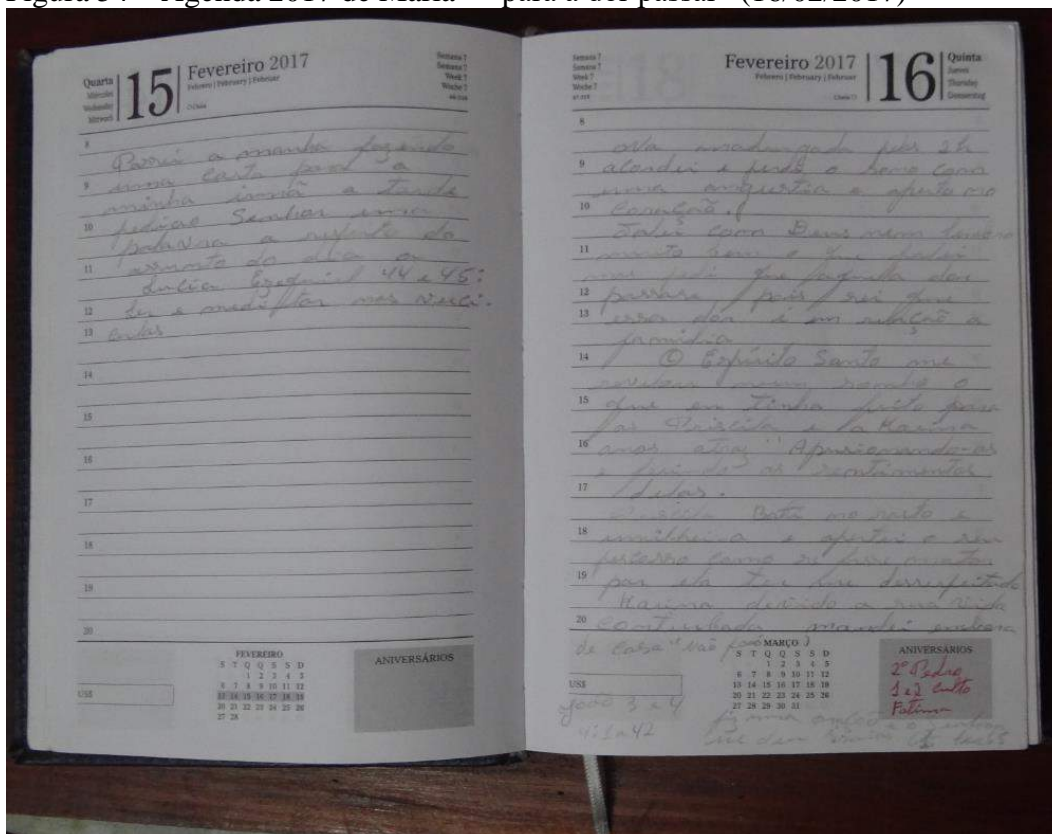 Figura 54 – Agenda 2017 de Maria – "para a dor passar" (16/02/2017)
Quarta
Miércoles
Wednesday
Mittwoch
15
Fevereiro 2017
Febrero | February | Februar
Semana 7
Semana 7
Week 7
Woche 7
8
Passei a manhã fazendo
9
uma carta para a
minha irmã a tarde
10
pedi ao Senhor uma
palavra a respeito do
11
assunto do dia a
Lucia Ezequiel 44 e 45:
12
Ler e meditar nos versí-
13
culos
14
15
16
17
18
19
20
US$
FEVEREIRO
S T Q Q S S D
1 2 3 4 5
6 7 8 9 10 11 12
13 14 15 16 17 18 19
20 21 22 23 24 25 26
27 28
ANIVERSÁRIOS
Semana 7
Semana 7
Week 7
Woche 7
Fevereiro 2017
Febrero | February | Februar
16
Quinta
Jueves
Thursday
Donnerstag
8
Na madrugada 2h
9
acordei e perdi o sono com
uma angustia e aperto no
10
coração.
Falei com Deus nem
11
muito bem o que pedir
mas pedi que aquela dor
12
passasse pois sei que
13
essa dor é em relação a
família
14
O Espírito Santo me
sonho o
15
que eu tinha feito para
as Priscila e a Marina
16
anos atraz "Aprisionando-as
e ferindo os sentimentos
17
delas.
Priscila Bati no rosto e
18
e apertei o seu
pescoço como se fosse matar
19
por ela ter me desrespeitado
Marina devido a sua vida
20
conturbada mandei embora
de casa
US$
MARÇO
S T Q Q S S D
1 2 3 4 5
6 7 8 9 10 11 12
13 14 15 16 17 18 19
20 21 22 23 24 25 26
27 28 29 30 31
ANIVERSÁRIOS
2º Pedro
1 e 2 culto
Fatima
João 3 e 4
4:1 a 42
fiz uma oração e o